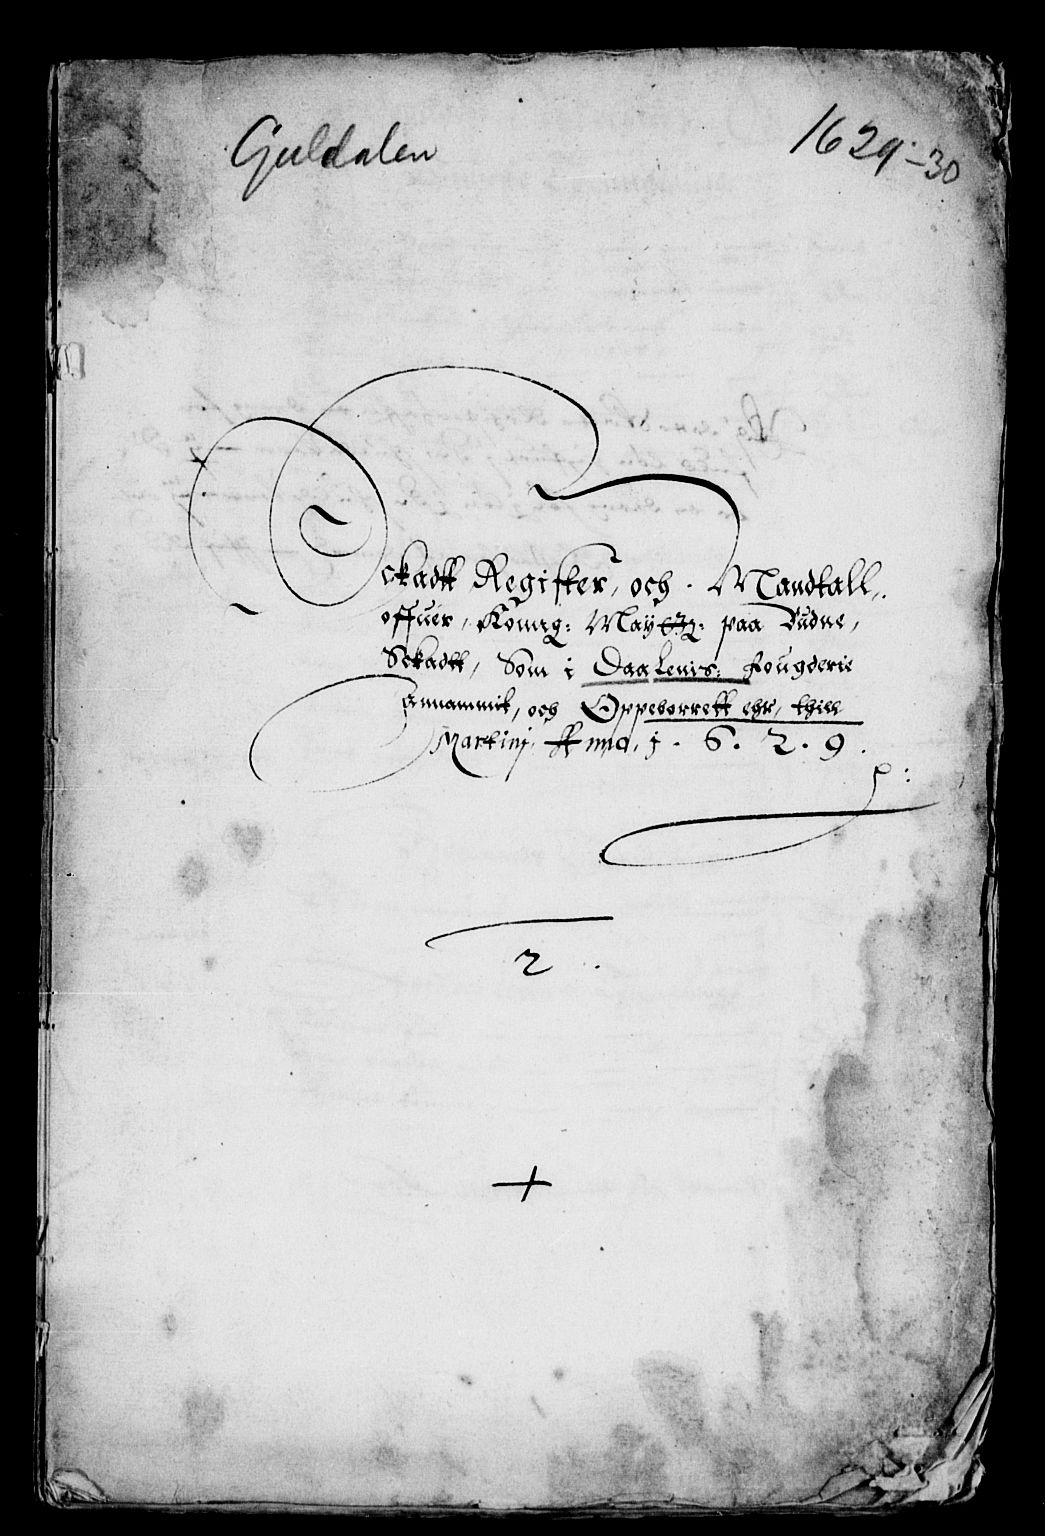 Guldalen
1629-30
Sckadtt Register, och. Mandtall,.
offuer, Konng: May tz: paa Budne,
Sckadtt, Som i Daalenns: fougderie
Annammit, och Oppeborrett ehr, thill
Martinj, Anno, j. 6. 2. 9.
p:
2
+